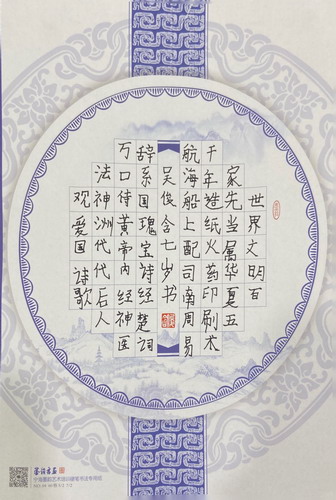 世界文明百
家先当属华夏五
千年造纸火药印刷术
航海船上配司南周易
吴俊含七岁书
辞系国瑰宝诗经楚词
万口待黄帝内经神医
法神洲代代后人
观爱国诗歌